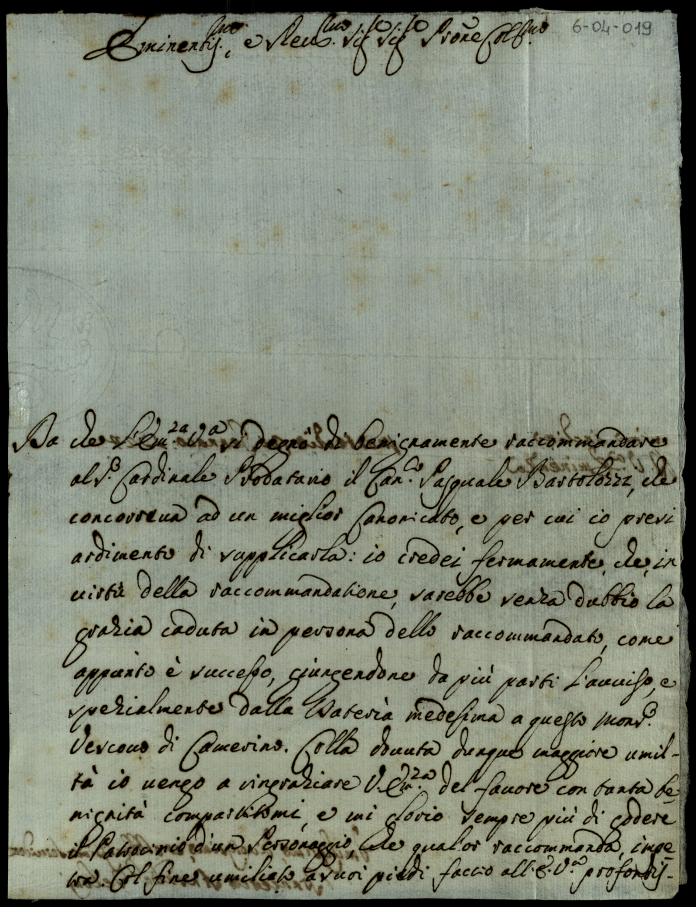 6-04-019
Eminentis.mo, e Reu.mo Sig.re Sig.re Prõne Col.mo
Da che l'Em.za V.a si degnò di benignamente raccommandare
al S.r Cardinale Prodatario il Can.co Pasquale Bartolozzi, che
concorreva ad un miglior Canonicato, e per cui io presi
ardimento di supplicarla: io credei fermamente, che, in
virtù della raccommandatione, sarebbe senza dubbio la
grazia caduta in persona dello raccommandato, come
appunto è successo, giungendone da più parti l'auuiso, e
spezialmente dalla Dateria medesima a questo Mons.r
Vescouo di Camerino. Colla douuta dunque maggiore umil-
tà io uengo a ringraziare V. Em.za del fauore con tanta be-
nignità compartitomi, e mi glorio sempre più di godere
il Patrocinio d'un Personaggio, che qualor raccommanda, impe
tra. Col fine umiliato a suoi piedi faccio all'E. V.a profondis-